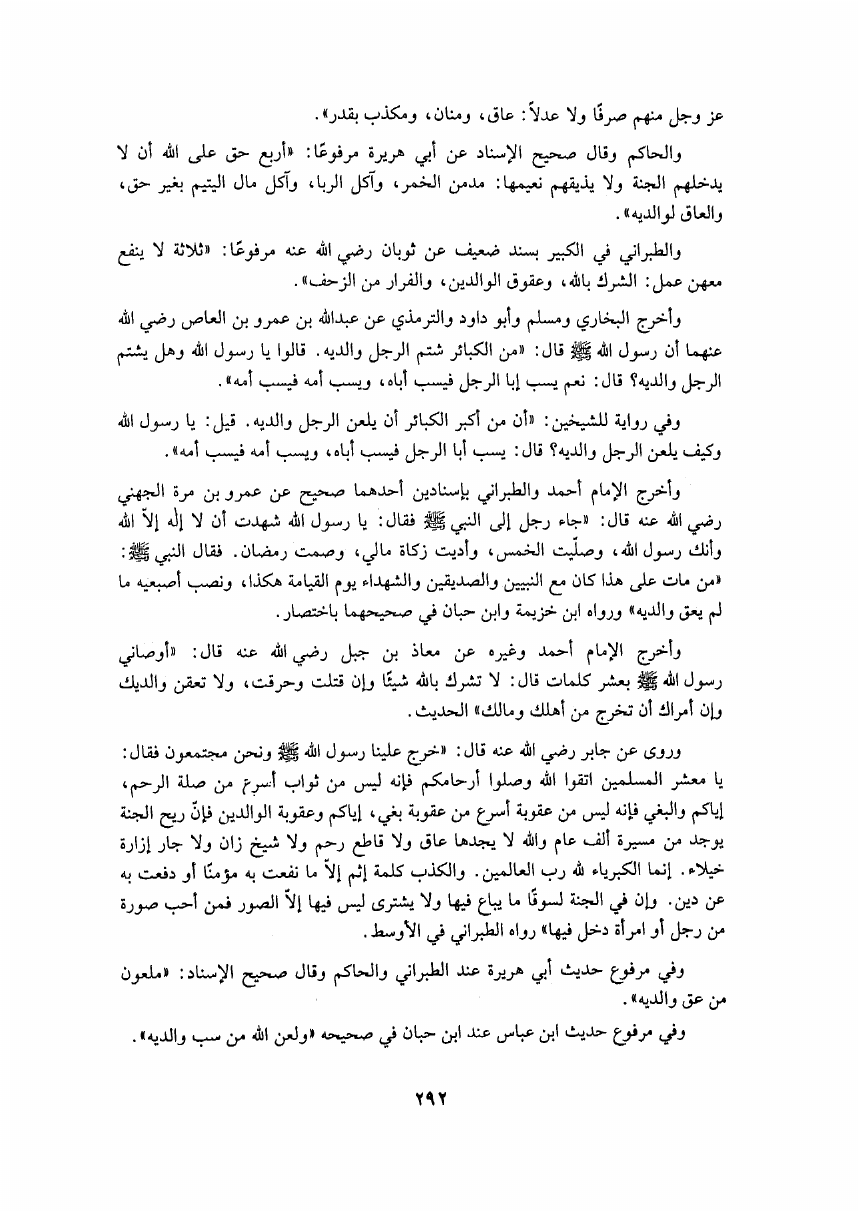 عز وجل منهم صرفًا ولا عدلاً: عاق، ومنان، ومكذب بقدر».
والحاكم وقال صحيح الإسناد عن أبي هريرة مرفوعًا: «أربع حق على الله أن لا
يدخلهم الجنة ولا يذيقهم نعيمها: مدمن الخمر، وآكل الربا، وآكل مال اليتيم بغير حق،
والعاق لوالديه».
والطبراني في الكبير بسند ضعيف عن ثوبان رضي الله عنه مرفوعًا: «ثلاثة لا ينفع
معهن عمل: الشرك بالله، وعقوق الوالدين، والفرار من الزحف».
وأخرج البخاري ومسلم وأبو داود والترمذي عن عبدالله بن عمرو بن العاص رضي الله
عنهما أن رسول الله ﷺ قال: «من الكبائر شتم الرجل والديه. قالوا يا رسول الله وهل يشتم
الرجل والديه؟ قال: نعم يسب إبا الرجل فيسب أباه، ويسب أمه فيسب أمه».
وفي رواية للشيخين: «أن من أكبر الكبائر أن يلعن الرجل والديه. قيل: يا رسول الله
وكيف يلعن الرجل والديه؟ قال: يسب أبا الرجل فيسب أباه، ويسب أمه فيسب أمه».
وأخرج الإمام أحمد والطبراني بإسنادين أحدهما صحيح عن عمرو بن مرة الجهني
رضي الله عنه قال: «جاء رجل إلى النبي ﷺ فقال: يا رسول الله شهدت أن لا إلٰه إلاّ الله
وأنك رسول الله، وصلّيت الخمس، وأديت زكاة مالي، وصمت رمضان. فقال النبي ﷺ:
«من مات على هذا كان مع النبيين والصديقين والشهداء يوم القيامة هكذا، ونصب أصبعيه ما
لم يعق والديه» ورواه ابن خزيمة وابن حبان في صحيحهما باختصار.
وأخرج الإمام أحمد وغيره عن معاذ بن جبل رضي الله عنه قال: «أوصاني
رسول الله ﷺ بعشر كلمات قال: لا تشرك بالله شيئًا وإن قتلت وحرقت، ولا تعقن والديك
وإن أمراك أن تخرج من أهلك ومالك» الحديث.
وروى عن جابر رضي الله عنه قال: «خرج علينا رسول الله ﷺ ونحن مجتمعون فقال:
يا معشر المسلمين اتقوا الله وصلوا أرحامكم فإنه ليس من ثواب أسرع من صلة الرحم،
إياكم والبغي فإنه ليس من عقوبة أسرع من عقوبة بغي، إياكم وعقوبة الوالدين فإنّ ريح الجنة
يوجد من مسيرة ألف عام والله لا يجدها عاق ولا قاطع رحم ولا شيخ زان ولا جار إزارة
خيلاء. إنما الكبرياء لله رب العالمين. والكذب كلمة إثم إلاّ ما نفعت به مؤمنًا أو دفعت به
عن دين. وإن في الجنة لسوقًا ما يباع فيها ولا يشترى ليس فيها إلاّ الصور فمن أحب صورة
من رجل أو امرأة دخل فيها» رواه الطبراني في الأوسط.
وفي مرفوع حديث أبي هريرة عند الطبراني والحاكم وقال صحيح الإسناد: «ملعون
من عق والديه».
وفي مرفوع حديث ابن عباس عند ابن حبان في صحيحه «ولعن الله من سب والديه».
٢٩٢